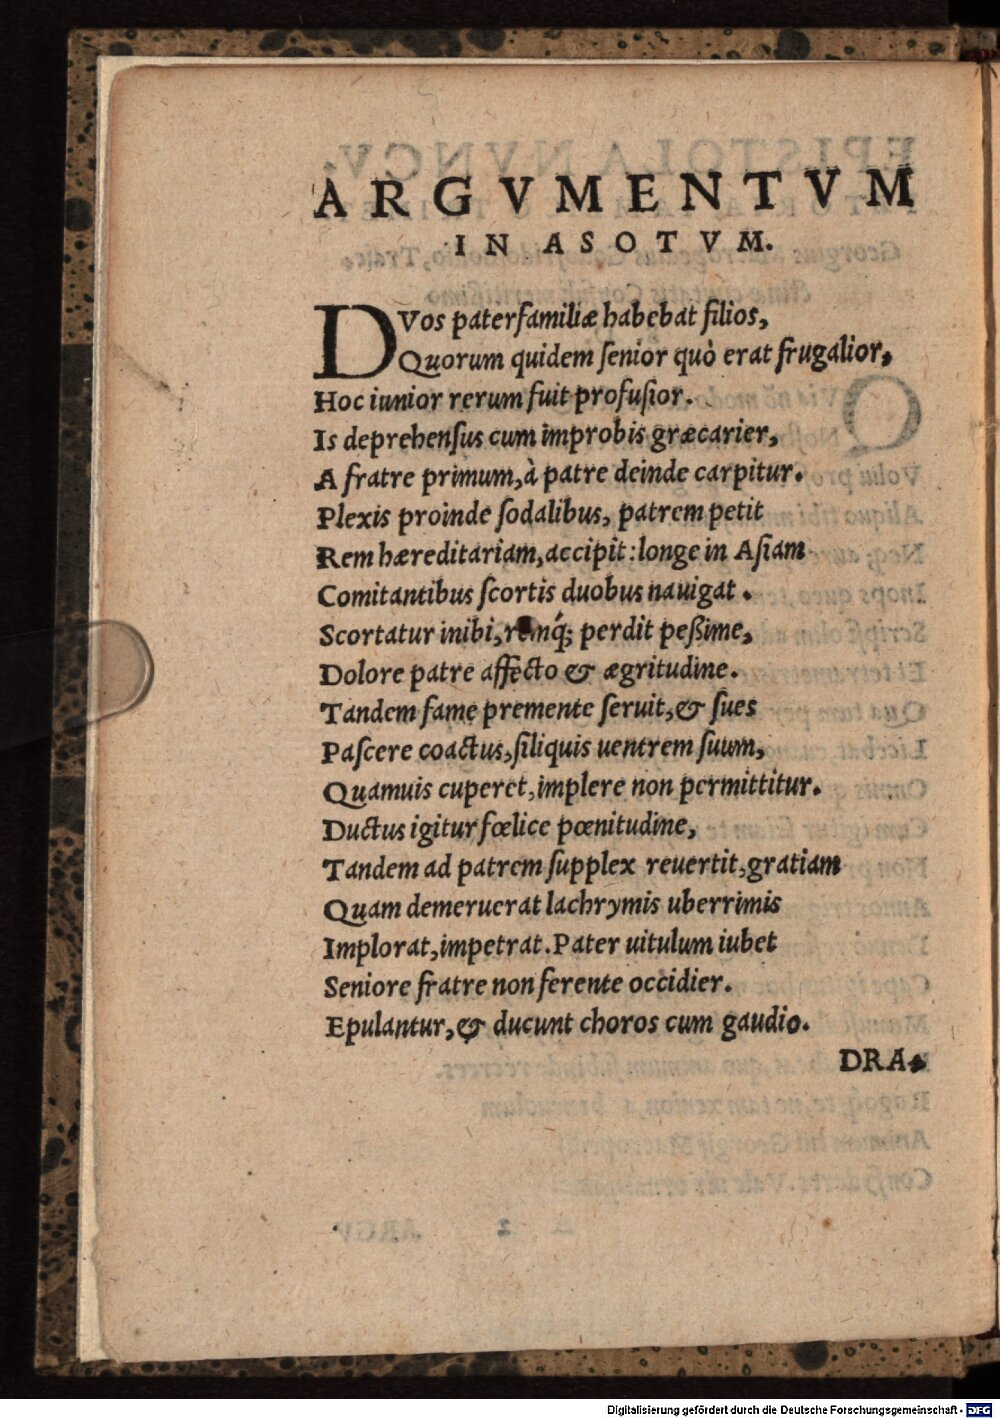 ARGVMENTVM
IN ASOTVM.
DVos paterfamiliæ habebat filios,
Quorum quidem ſenior quò erat frugalior,
Hoc iunior rerum fuit profuſior.
Is deprehenſus cum improbis græcarier,
A fratre primum, à patre deinde carpitur.
Plexis proinde ſodalibus, patrem petit
Rem hæreditariam, accipit: longe in Aſiam
Comitantibus ſcortis duobus nauigat.
Scortatur inibi, remq́; perdit peßime,
Dolore patre affecto & ægritudine.
Tandem fame premente ſeruit, & ſues
Paſcere coactus, ſiliquis uentrem ſuum,
Quamuis cuperet, implere non permittitur.
Ductus igitur fœlice pœnitudine,
Tandem ad patrem ſupplex reuertit, gratiam
Quam demeruerat lachrymis uberrimis
Implorat, impetrat. Pater uitulum iubet
Seniore fratre non ferente occidier.
Epulantur, & ducunt choros cum gaudio.
DRA-
Digitalisierung gefördert durch die Deutsche Forschungsgemeinschaft - DFG